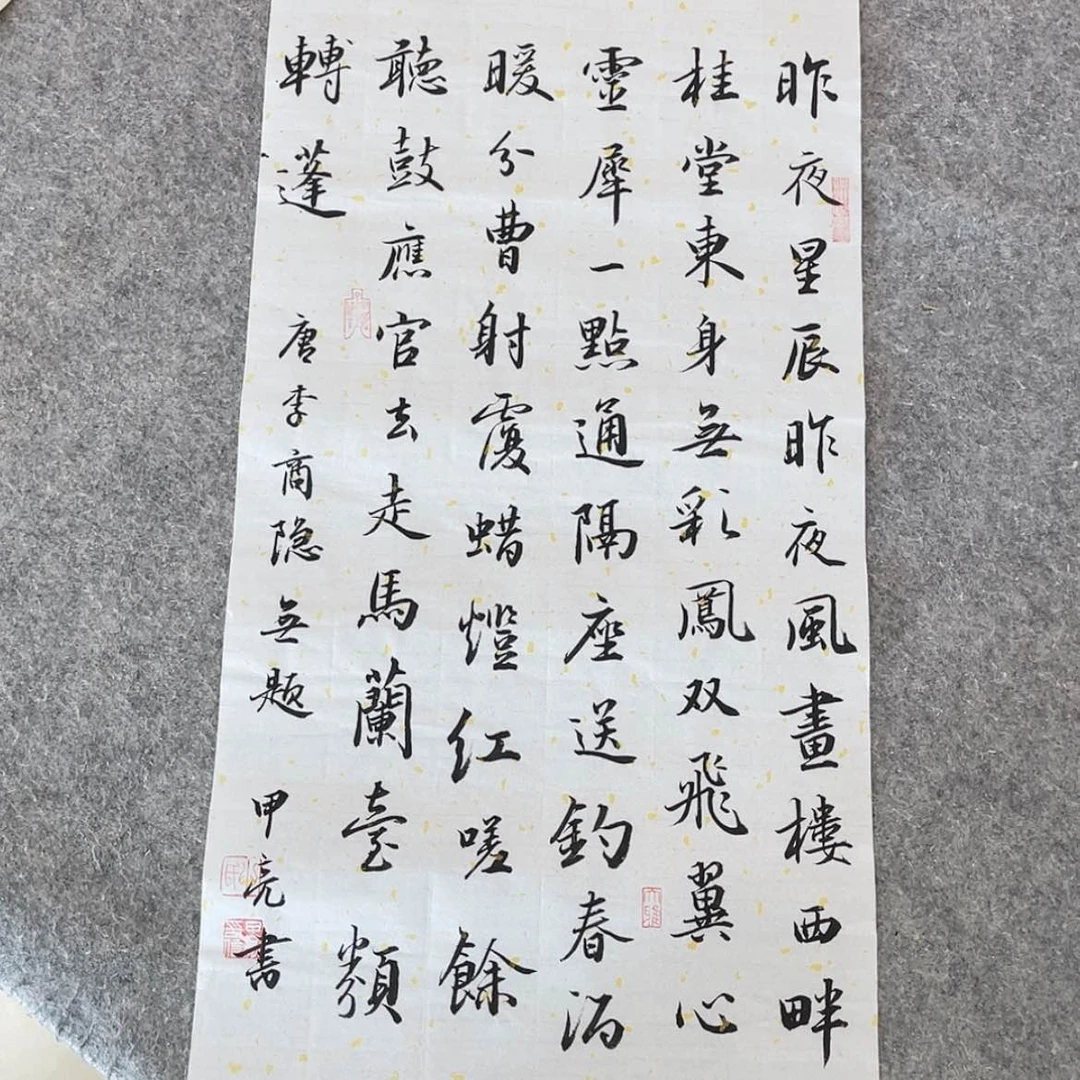 昨夜星辰昨夜風畫樓西畔
桂堂東身無彩鳳双飛翼心
靈犀一點通隔座送釣春酒
暖分曹射覆蜡燈红嗟餘
聽鼓應官去走馬蘭臺類
轉蓬
唐李商隐無题
甲亮书